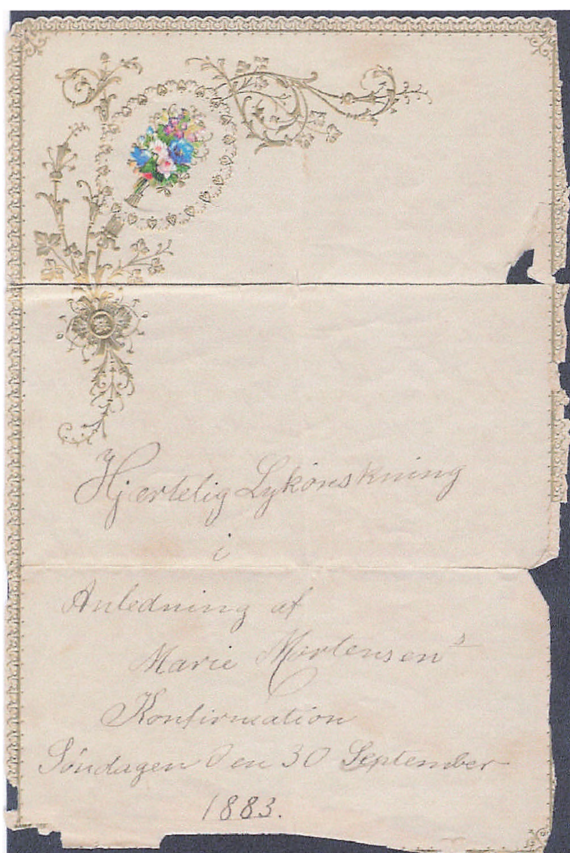 Hjertelig Lykønskning
i
Anledning af
Marie Mortensens
Konfirmation
Søndagen den 30 September
1883.